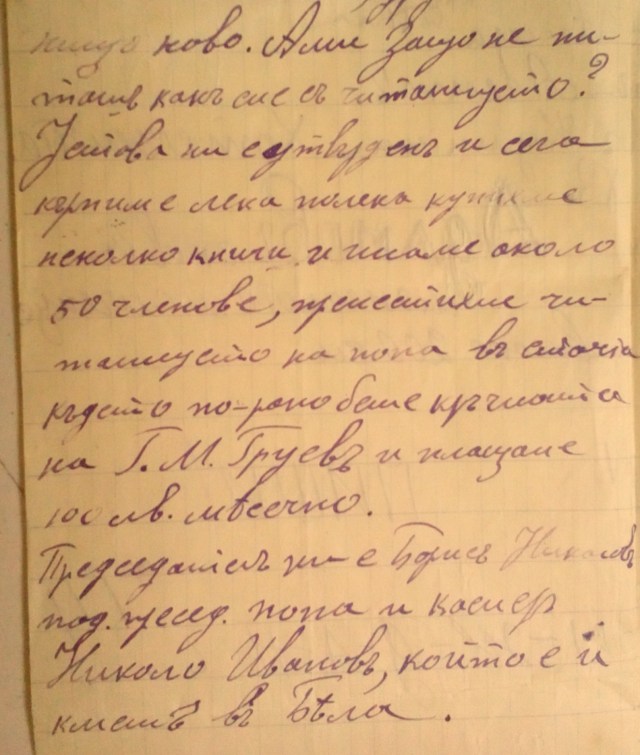 нищо ново. Ами Защо не пи-
таш какъ сме съ читалището?
Устава ни е утвърденъ и сега
кърпиме лека полека купихме
неколко книги и имаме около
50 членове, преместихме чи-
талището на попа въ стаята
където по-рано беше кръчмата
на Г. М. Груевъ и плащаме
100 лв. мѣсечно.
Председателъ ни е Борисъ Николовъ
под. пресед. попа и касиер
Николо Ивановъ, който е и
кметъ въ Бѣла.